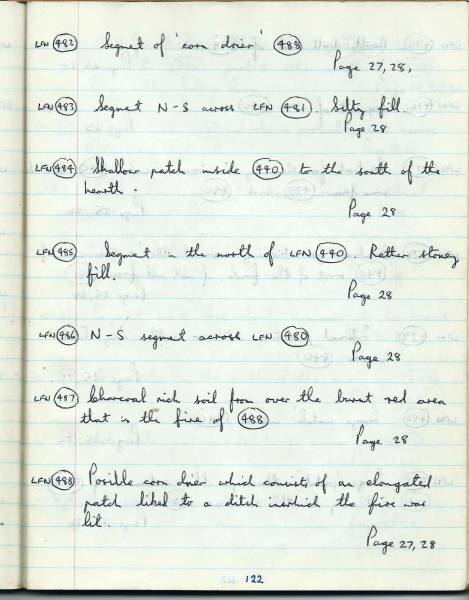 LFN 482 Segment of 'corn drier' 488
Page 27, 28,
LFN 483 Segment N-S across LFN 481. Silty fill.
Page 28
LFN 484 Shallow patch inside 440 to the south of the
hearth.
Page 28
LFN 485 Segment in the north of LFN 440. Rather stoney
fill.
Page 28
LFN 486 N-S segment across LFN 480
Page 28
LFN 487 Charcoal rich soil from over the burnt red area
that is the fire of 488
Page 28
LFN 488 Posible corn drier which consists of an elongated
patch liked to a ditch inwhich the fire was
lit.
Page 27, 28
122